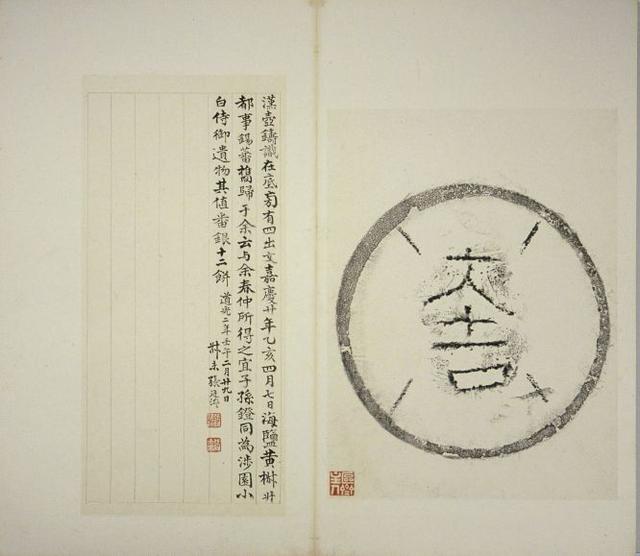 大吉
漢壺鑄識在底旁有四出文嘉慶廿年乙亥四月七日海鹽黃椒升
都事錫蕃攜歸于余云与余春仲所得之宜子孫鐙同為涉園小
白侍御遺物其值番銀十二餅 道光二年壬午二月廿九日
叔未張廷濟